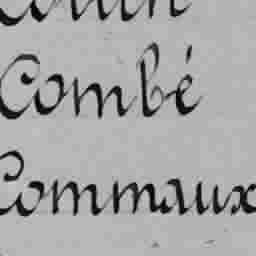 Combé
Commaux